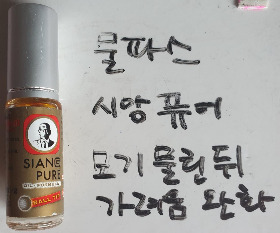 물파스
시앙 퓨어
모기 물린 뒤
가려움 완화
SIANG
PURE